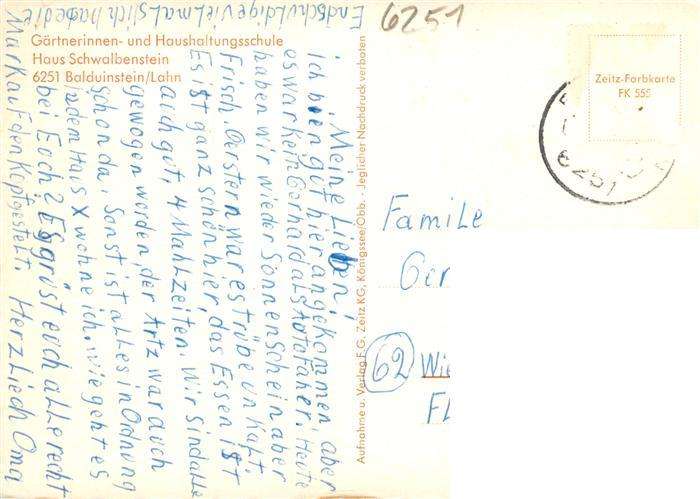 6251
Gärtnerinnen- und Haushaltungsschule
Haus Schwalbenstein
6251 Balduinstein/Lahn
Zeitz-Farbkarte
FK 555
6251
Aufnahme u. Verlag F.G. Zeitz KG, Königssee/Obb. · Jeglicher Nachdruck verboten
Meine Lieben,
ich bien gut hier angekommen, aber
es war kein Gerhard als Autofaher. Heute
haben wir wieder Sonnenschein aber
Frisch. Gerstern war es trübe un Kalt.
Es ist ganz schön hier, das Essen ist
auch gut, 4 Mahlzeiten. Wir sind alle
gewogen worden, der Artz war auch
schon da. Sonst ist alles in Ordnung
in dem Haus X wohne ich. wie geht es
bei Euch? Es grüst euch alle recht
Herzliech Oma
Endschuldige vielmals ich habe die
Marke auf den Kopf gestelt.
Familie
Ger
62 Wie